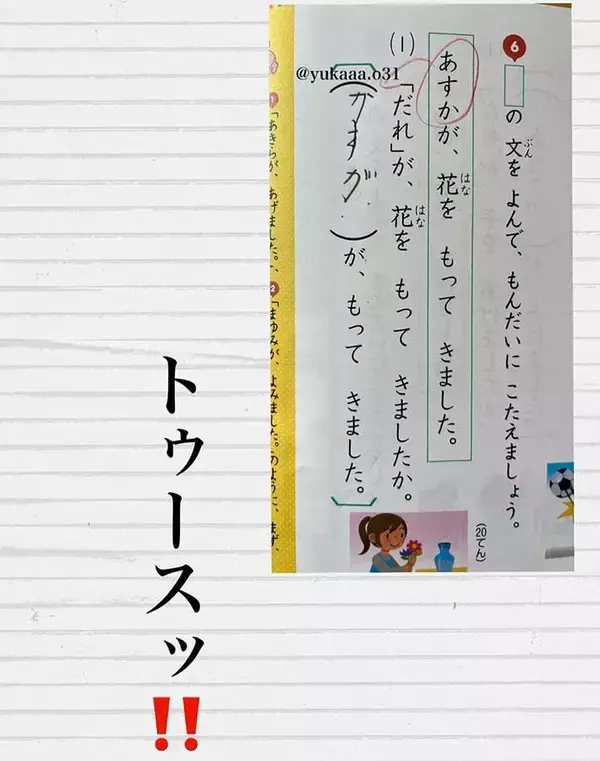 6
□の 文を よんで、もんだいに こたえましょう。
ぶん
あすかが、花を もって きました。
はな
(1)「だれ」が、花を もって きましたか。
はな
(かすが)が、もって きました。
(20てん)
1
「あきらが、あげました。」、
2
「まゆみが、よみました。」のように、まず、
@yukaaa.o31
トゥースッ‼️